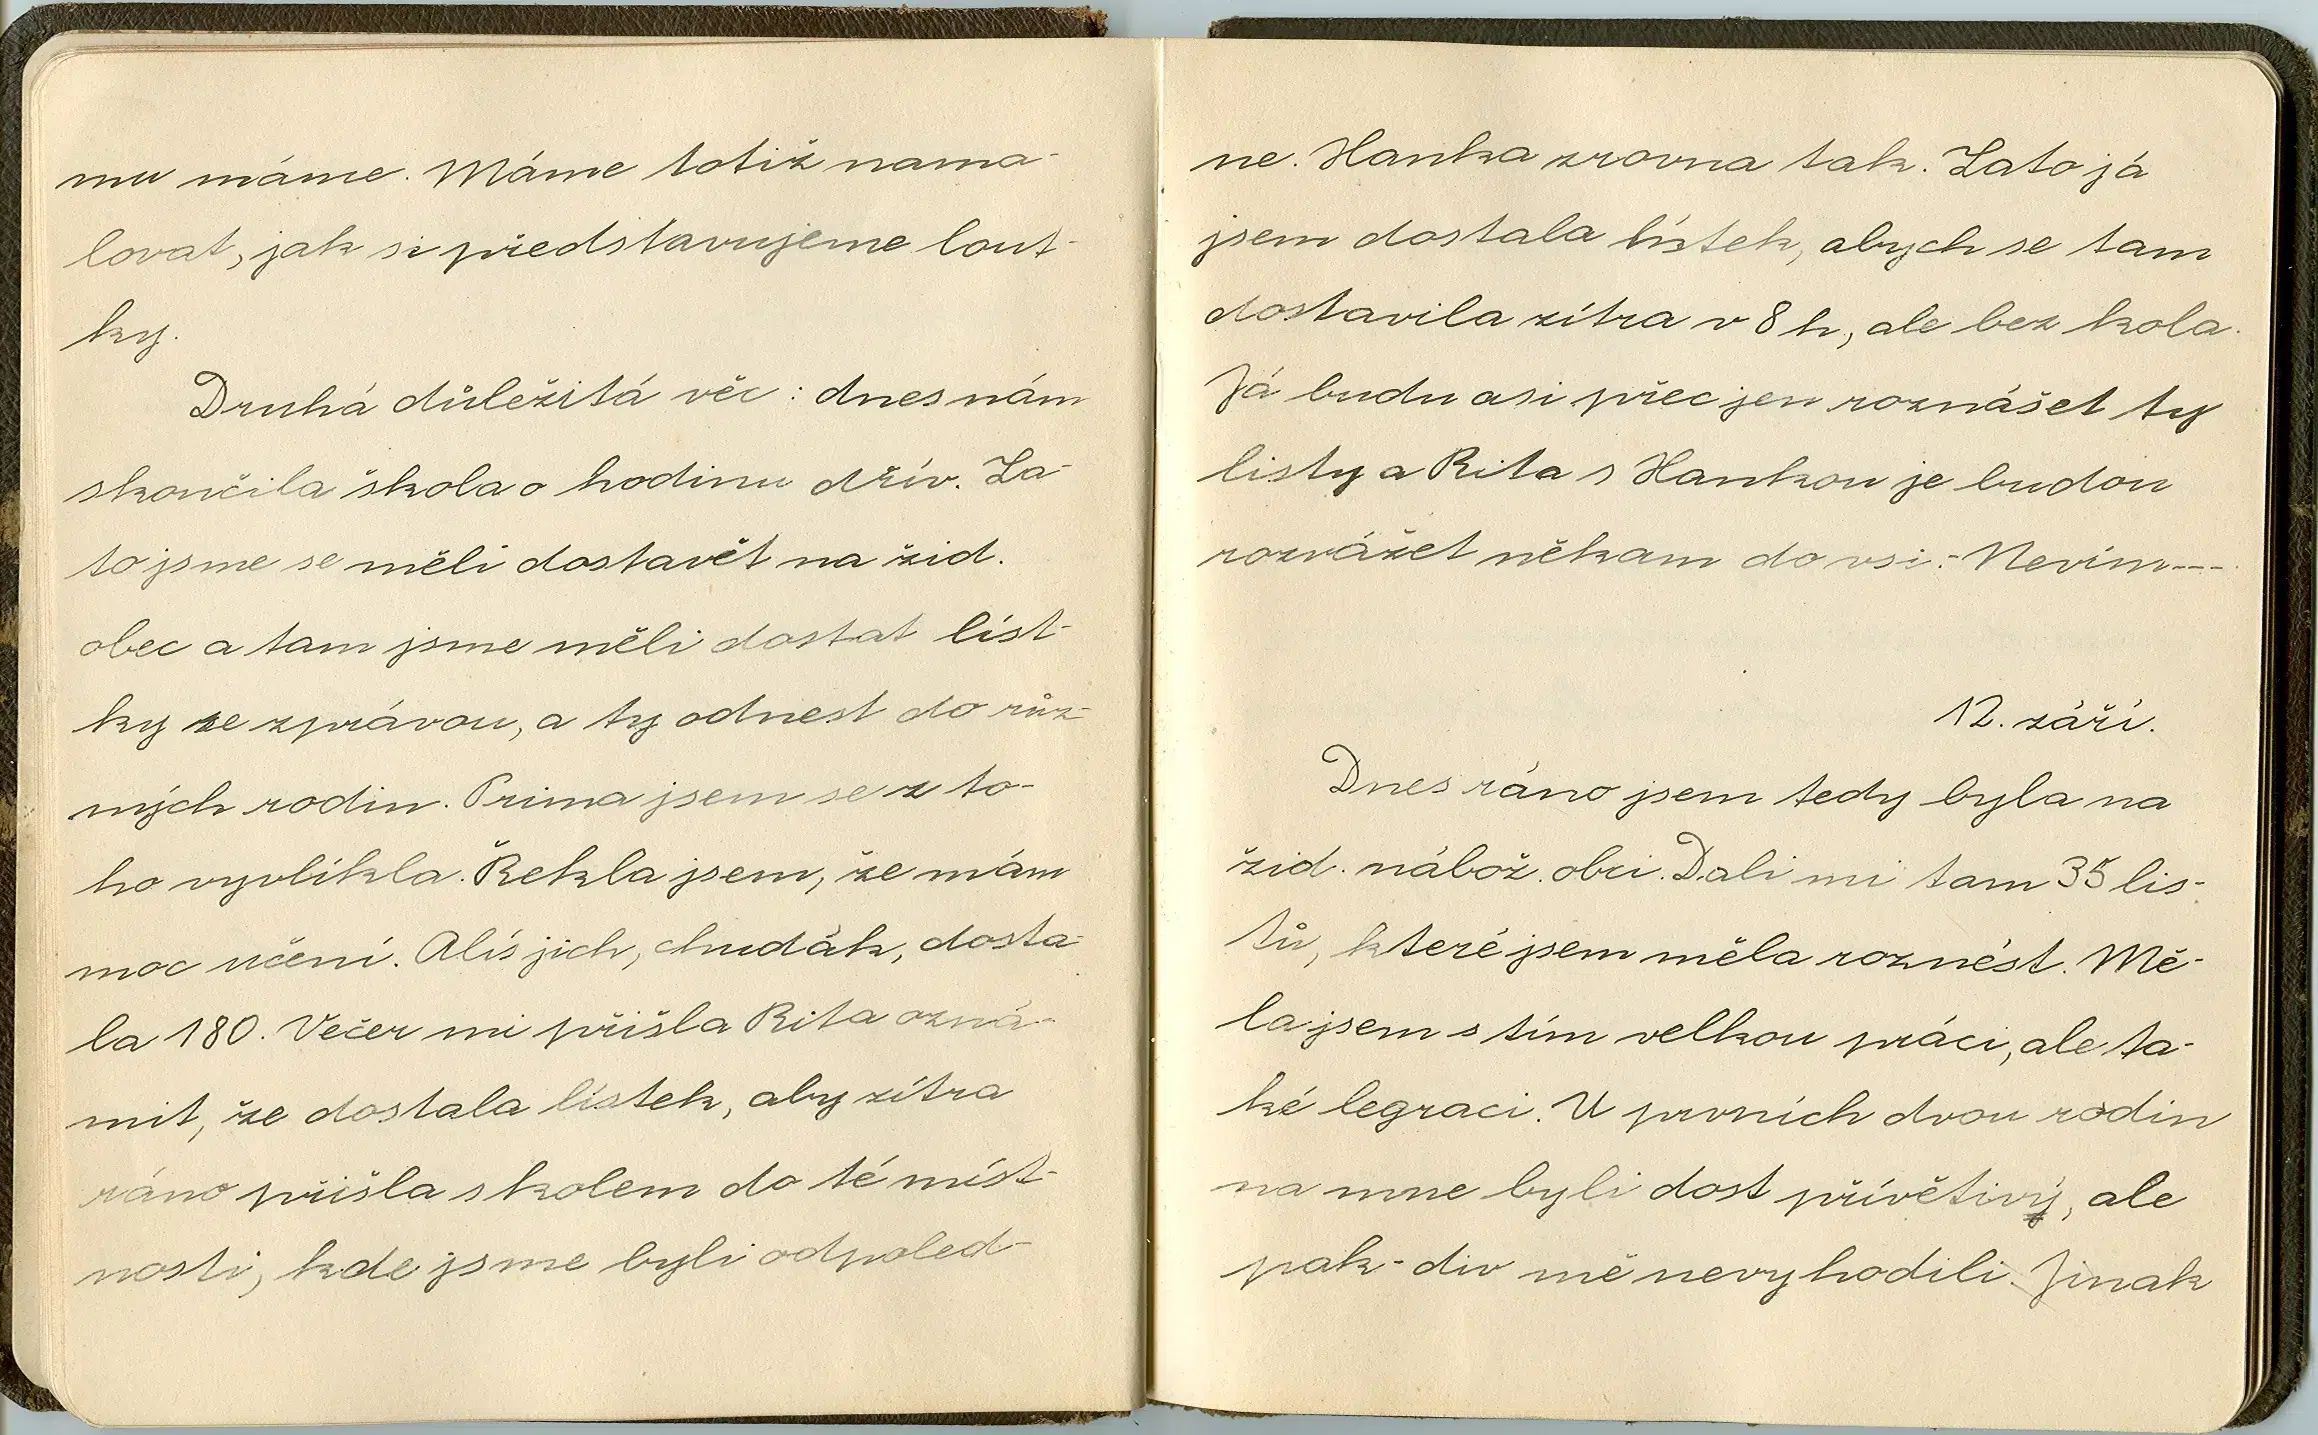 mu máme. Máme totiž nama-
lovat, jak si představujeme lout-
ky.
Druhá důležitá věc: dnes nám
skončila škola o hodinu dřív. Za-
to jsme se měli dostavět na žid.
obec a tam jsme měli dostat líst-
ky se zprávou, a ty odnest do růz-
ných rodin. Prima jsem se z to-
ho vyvlíkla. Řekla jsem, že mám
moc učení. Alis jich, chudák, dosta-
la 180. Večer mi přišla Rita ozná-
mit, že dostala lístek, aby zítra
ráno přišla s kolem do té míst-
nosti, kde jsme byli odpoled-
ne. Hanka zrovna tak. Zato já
jsem dostala lístek, abych se tam
dostavila zítra v 8 h, ale bez kola.
Já budu asi přec jen roznášet ty
listy a Rita s Hankou je budou
rozvážet někam do vsi.- Nevím---
12. září.
Dnes ráno jsem tedy byla na
žid. nábož. obci. Dali mi tam 35 lis-
tů, které jsem měla roznést. Mě-
la jsem s tím velkou práci, ale ta-
ké legraci. U prvních dvou rodin
na mne byli dost přívětivý, ale
pak - div mě nevyhodili. Jinak